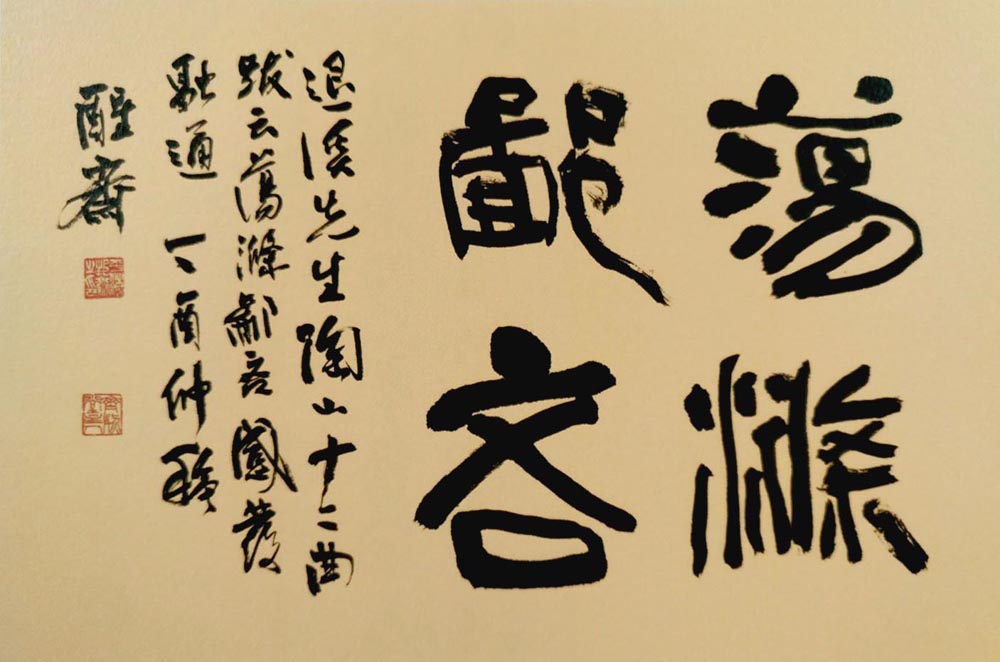 蕩滌
鄙吝
退溪先生陶山十二曲
跋云蕩滌鄙吝感發
融通 丁酉仲秋
醒齋